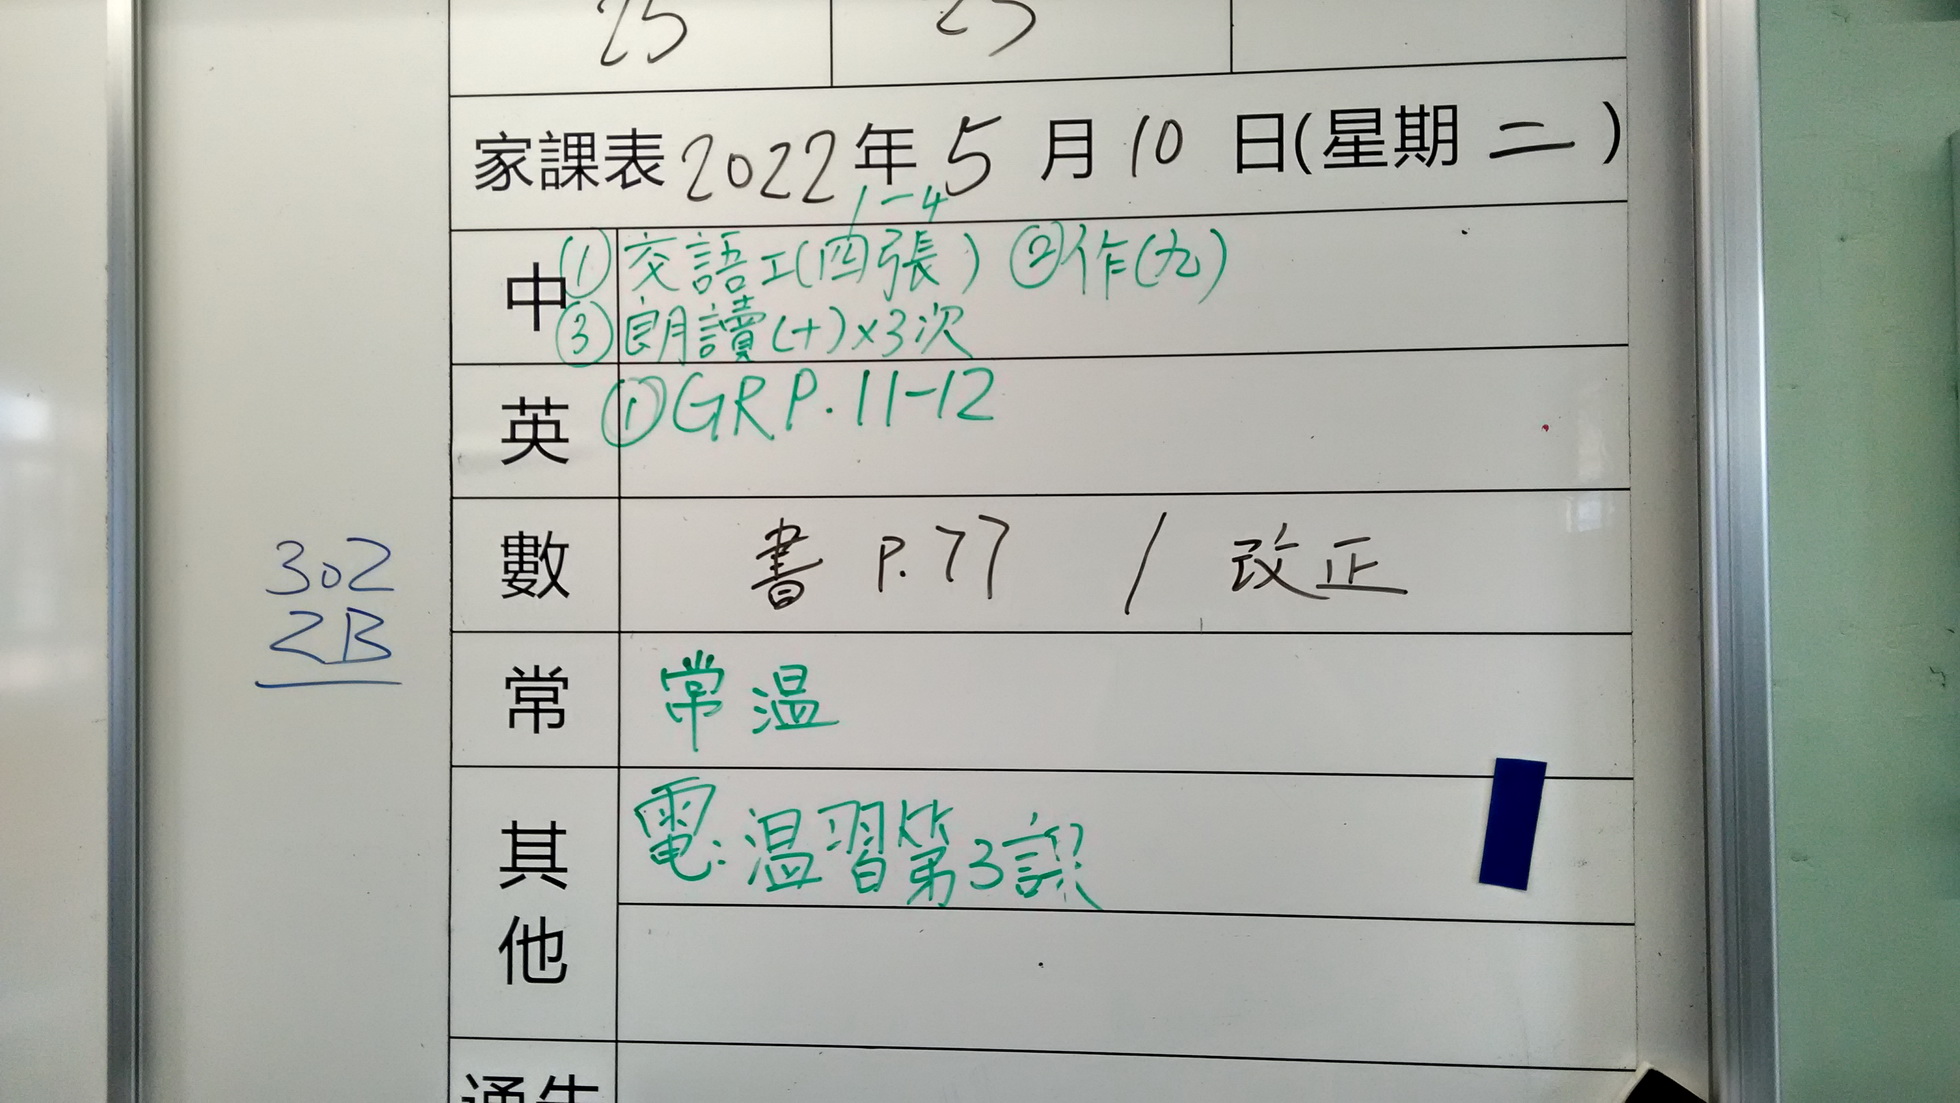 25 25
家課表 2022 年 5 月 10 日(星期 二 )
1-4
中 (1) 交語工(四張) ②作(九)
③ 朗讀(十)×3次
英 ①GR P.11-12
數 書 P.77 / 改正
302
2B
常 常温
其他 電:温習第3課
通告